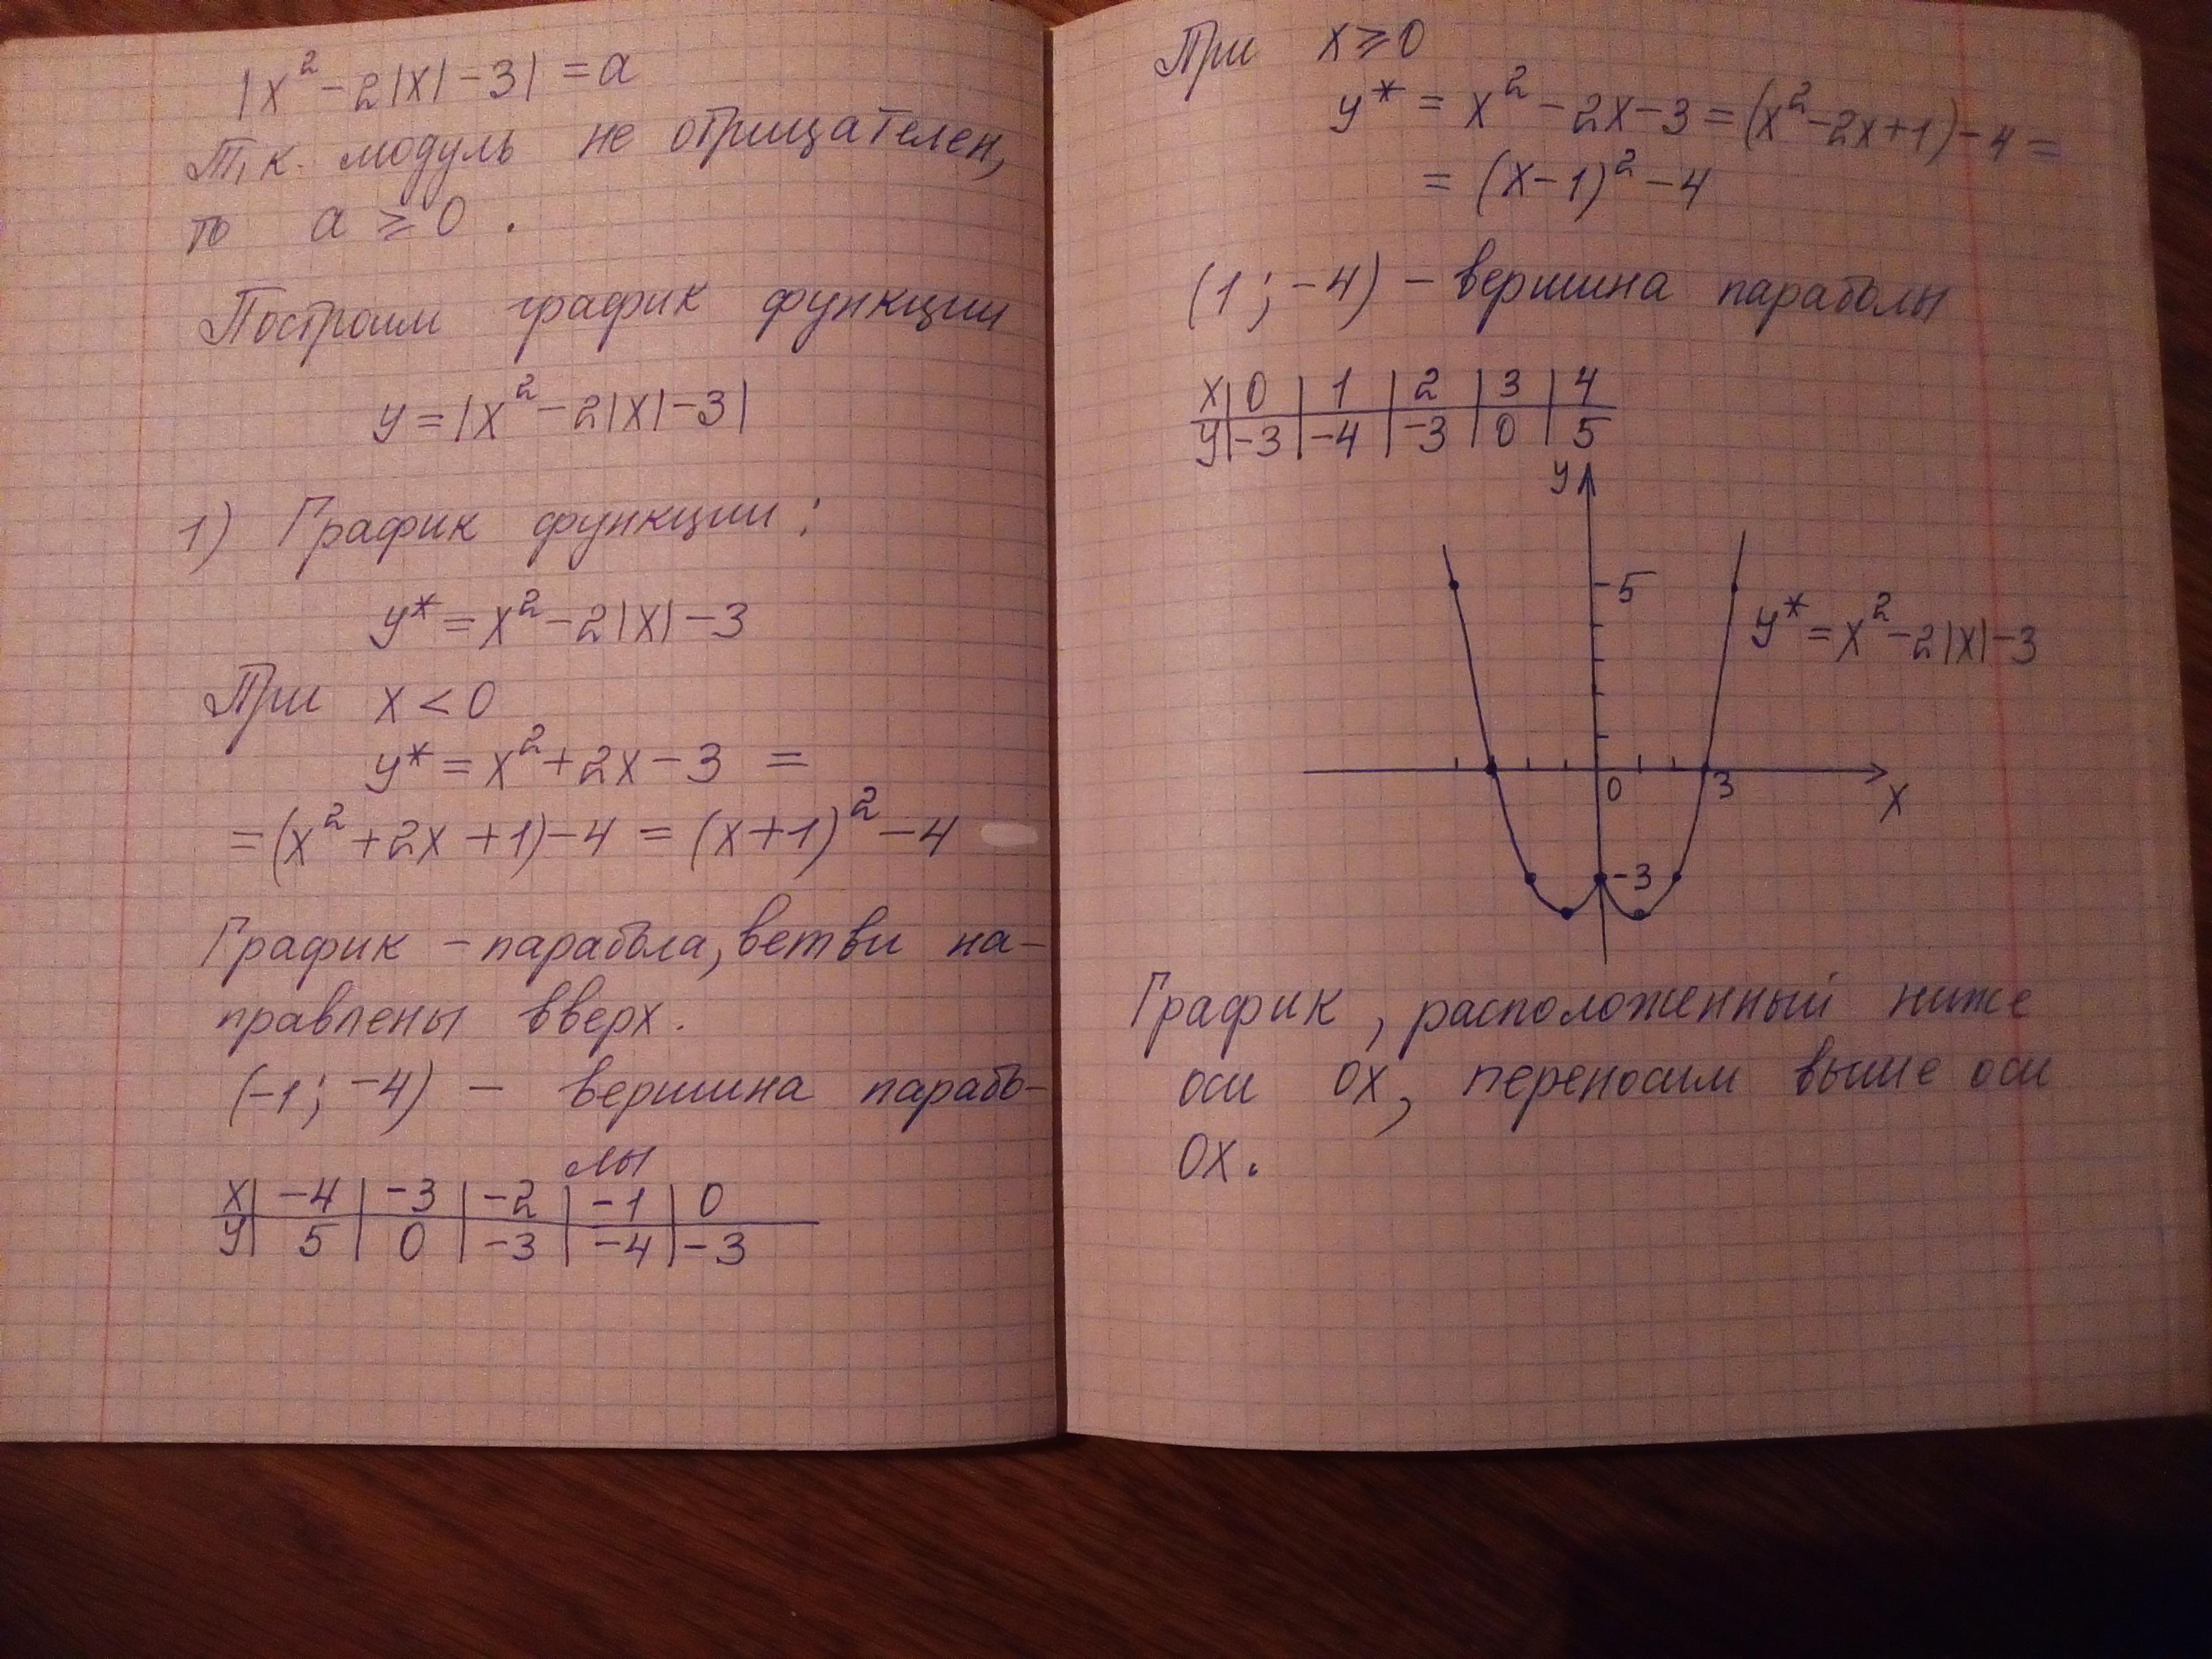 |x² - 2|x| - 3| = a
Т.к. модуль не отрицателен,
то a ≥ 0.
Построим график функции
y = |x² - 2|x| - 3|
1) График функции:
y* = x² - 2|x| - 3
При x < 0
y* = x² + 2x - 3 =
= (x² + 2x + 1) - 4 = (x + 1)² - 4
График - парабола, ветви на-
правлены вверх.
(-1; -4) - вершина парабо-
лы
x | -4 | -3 | -2 | -1 | 0
y | 5 | 0 | -3 | -4 | -3
При x ≥ 0
y* = x² - 2x - 3 = (x² - 2x + 1) - 4 =
= (x - 1)² - 4
(1; -4) - вершина параболы
x | 0 | 1 | 2 | 3 | 4
y | -3 | -4 | -3 | 0 | 5
y
5
y* = x² - 2|x| - 3
0 3 x
-3
График, расположенный ниже
оси OX, переносим выше оси
OX.